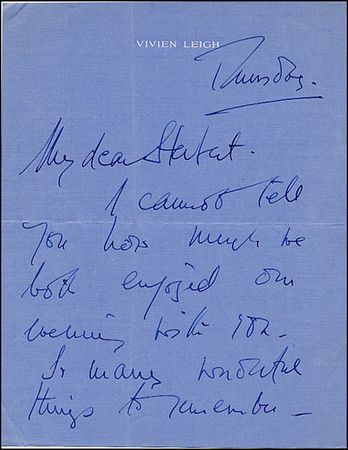 VIVIEN LEIGH
Thursday.
My dear Herbert.
I cannot tell
you how much we
both enjoyed our
evening with you -
So many wonderful
things to remember -